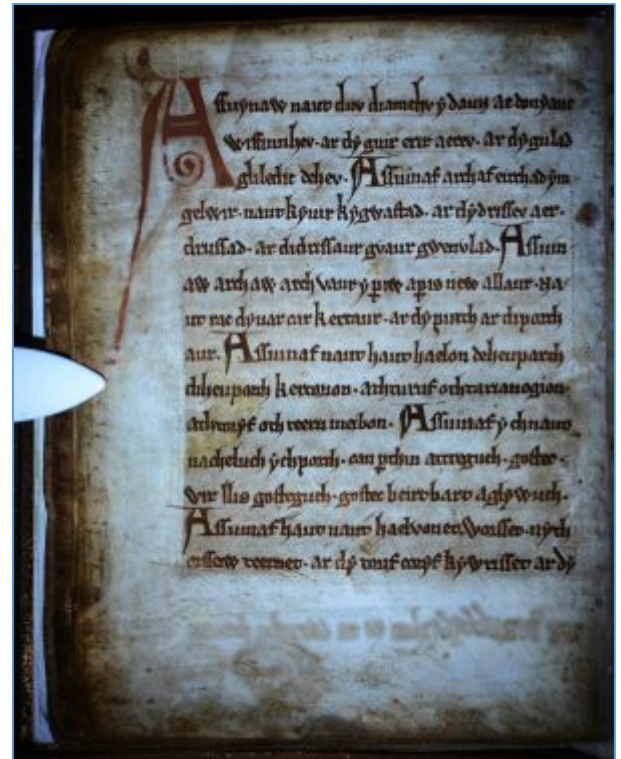 Assuynaw naut duv diamehv y daun ae donyauc
wissuinhev. ar dy guir erir aerev. ar dy gulad
a gliledic dehev. Assuinaf archaf eirchad ym
gelwir. naut kyuir kygwastad. ar dy drissev aer.
drussad. ar didrissaur gvaur gwenvlad. Assuin
aw archaw arch vaur y periw a peris new a llaur. na
ut rac dy uar car kertaur. ar dy pirth ar diporth
aur. Assuinaf naut haut haelon deheuparth
diheuparth kertorion. athturuf oth tarianogion.
athtoryf oth teern meibon. Assuinaf y chnaut
nacheluch ych porth. can perthin attreguch. gostec.
wir llis gosteguch. gostec beirt bart a glywuch.
Assuinaf haut naut haelvonet. Woisset nyth
teernet. ar dy toryf kywrisset ar dy